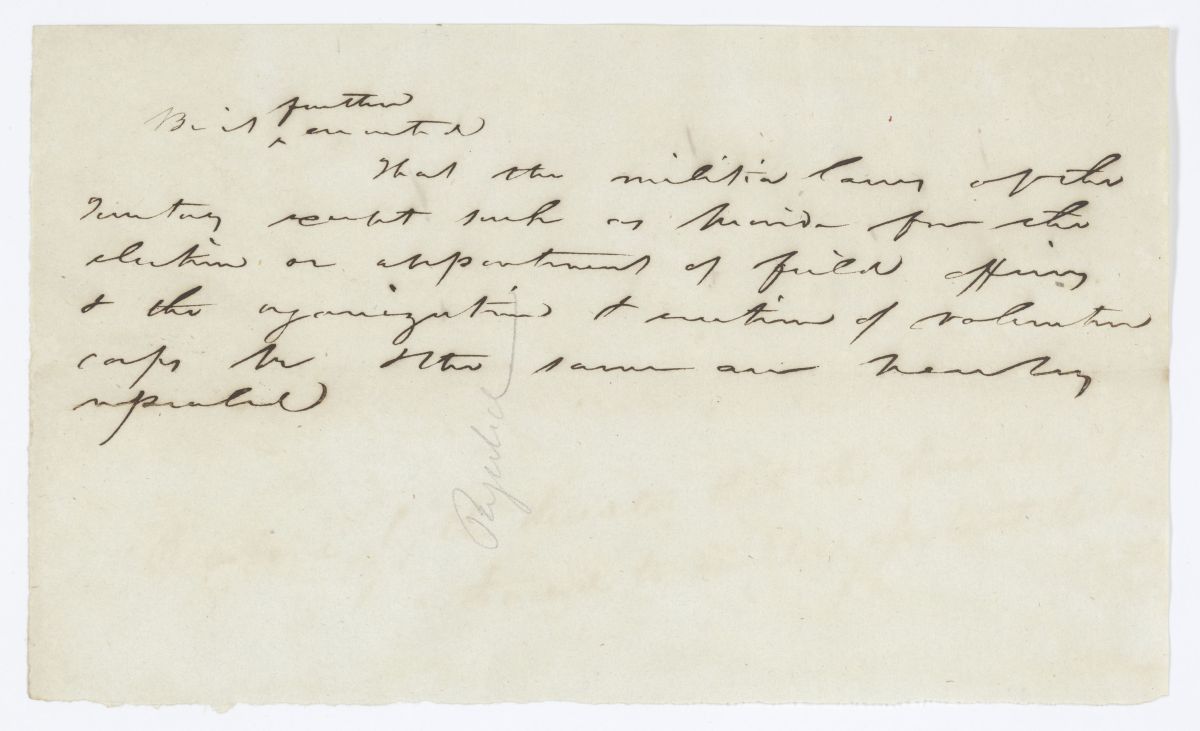 Be it ^further enacted
That the militia laws of the
Territory except such as provide for the
election or appointment of field officers
& the organization & creation of volunteer
corps be & the same are hereby
repealed
Rejected